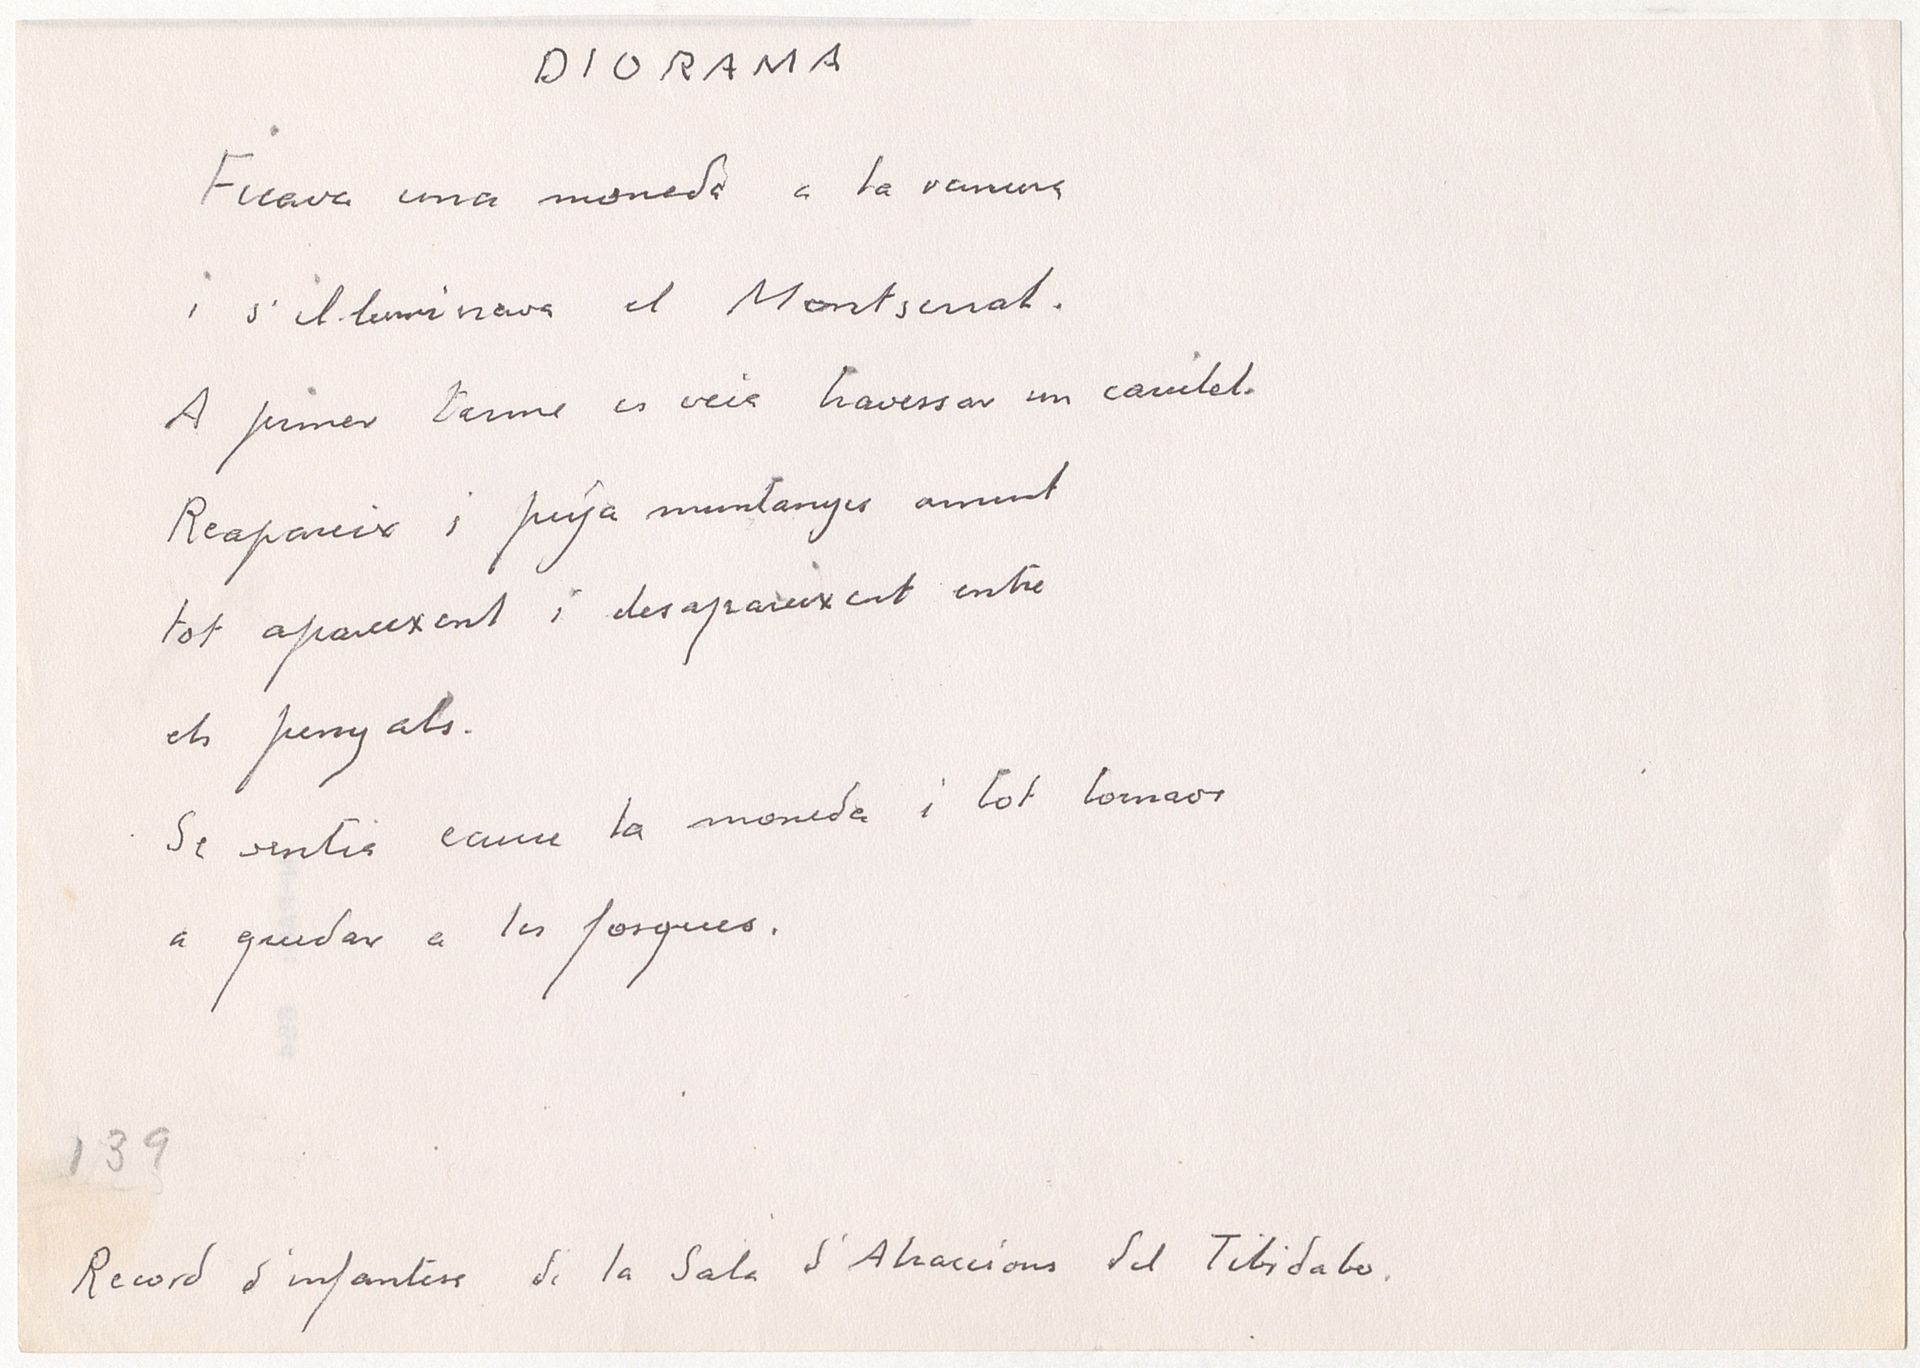 DIORAMA
Ficava una moneda a la ranura
i s'il·luminava el Montserrat.
A primer terme es veia travessar un carrilet.
Reapareix i puja muntanyes amunt
tot apareixent i desapareixent entre
els penyals.
Se sentia caure la moneda i tot tornava
a quedar a les fosques.
139
Record d'infantesa de la Sala d'Atraccions del Tibidabo.